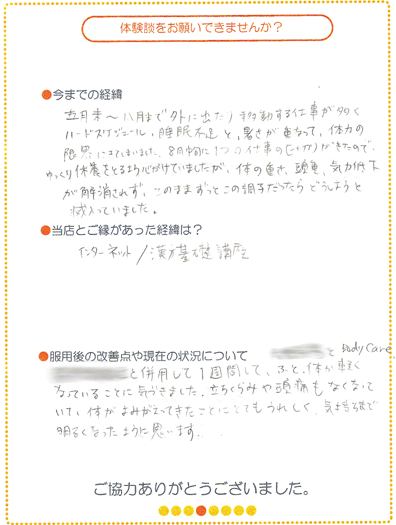 体験談をお願いできませんか？
●今までの経緯
五月末〜八月まで外に出たり移動する仕事が多く
ハードスケジュール、睡眠不足と、暑さが重なって、体力の
限界にきてしまいました。8月中旬に1つの仕事の区切りができたので、
ゆっくり休養をとるよう心がけていましたが、体の重さ、頭重、気力低下
が解消されず、このままずっとこの調子だったらどうしようと
滅入っていました。
●当店とご縁があった経緯は？
インターネット/漢方基礎講座
●服用後の改善点や現在の状況について
と Body Care
と併用して1週間して、ふと、体が軽く
なっていることに気づきました。立ちくらみや頭痛もなくなって
いて、体がよみがえってきたことにとてもうれしく、気持ちまで
明るくなったように思います。
ご協力ありがとうございました。